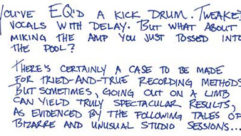 YOU'VE EQ'D A KICK DRUM. TWEAKED
VOCALS WITH DELAY. BUT WHAT ABOUT
MIKING THE AMP YOU JUST TOSSED INTO
THE POOL?
THERE'S CERTAINLY A CASE TO BE MADE
FOR TRIED-AND-TRUE RECORDING METHODS
BUT SOMETIMES, GOING OUT ON A LIMB
CAN YIELD TRULY SPECTACULAR RESULTS,
AS EVIDENCED BY THE FOLLOWING TALES OF
BIZARRE AND UNUSUAL STUDIO SESSIONS...